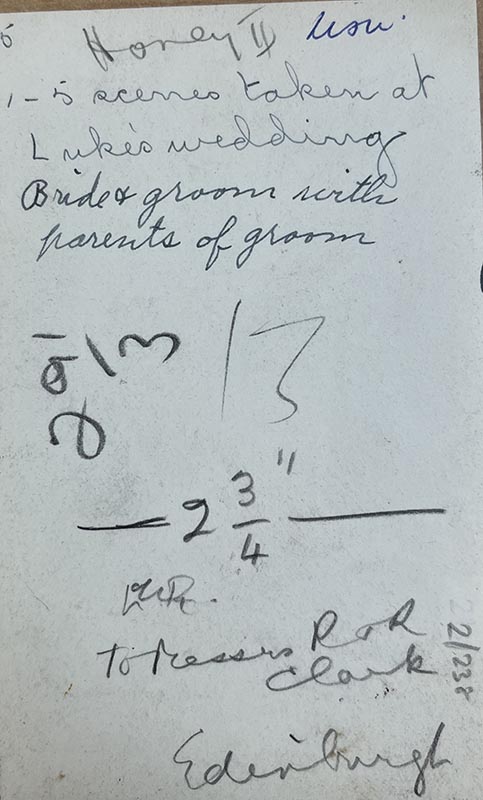 5 Honey II
1-5 scenes taken at
Luke's wedding
Bride & groom with
parents of groom
13
— 2 3/4" —
To Messrs R & R
Clark
Edinburgh
2/238